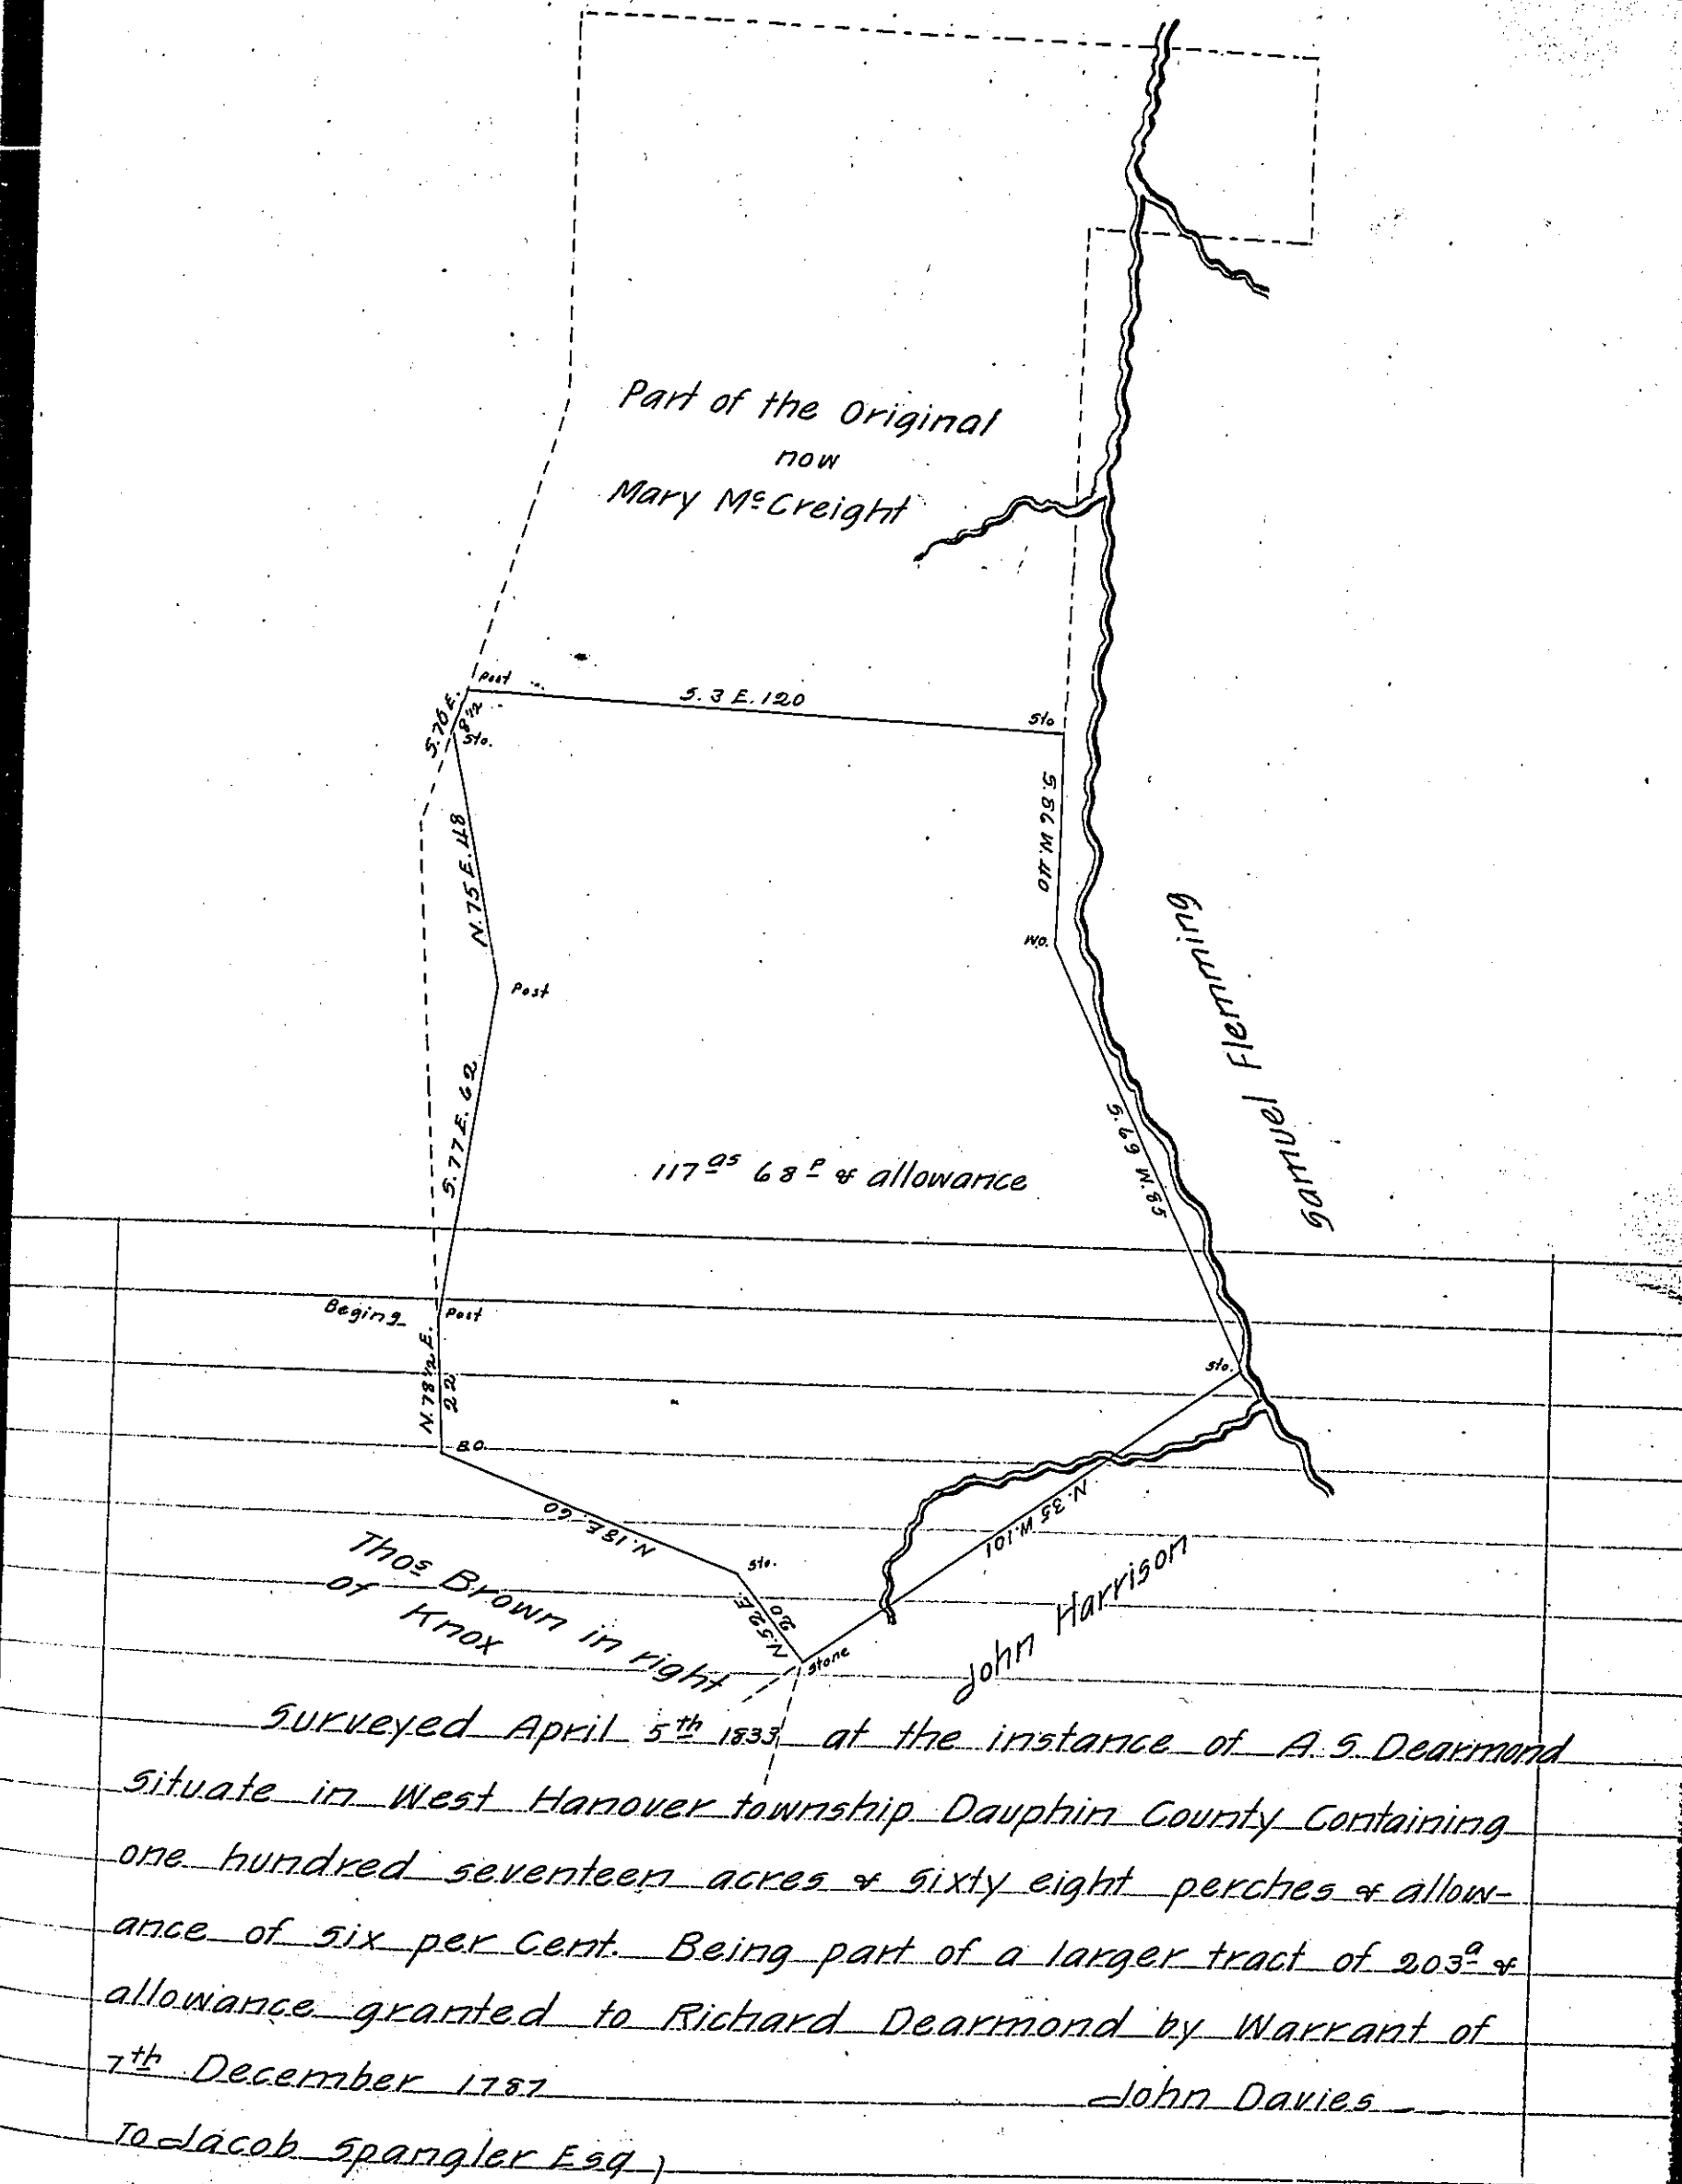 Part of the Original
now
Mary McCreight
Post
S. 3 E. 120
Sto
S. 76 E.
8 1/2
Sto.
N. 75 E. 48
S. 86 W. 40
W.O.
Post
Samuel Flemming
S. 77 E. 62
S. 69 W. 85
117 as 68 P & allowance
Beging
Post
N. 78 1/2 E.
22
Sto.
B.O.
N. 18 E. 60
N. 35 W. 101
Sto.
N. 52 E.
20
Stone
Thos Brown in right
of Knox
John Harrison
Surveyed April 5th 1833 at the instance of A. S. Dearmond
Situate in West Hanover township Dauphin County Containing
one hundred seventeen acres & sixty eight perches & allow-
ance of six per Cent. Being part of a larger tract of 203 a &
allowance granted to Richard Dearmond by Warrant of
7th December 1787
John Davies
To Jacob Spangler Esq